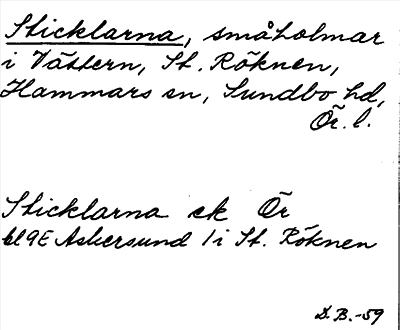 Sticklarna, småholmar
i Vättern, St. Röknen,
Hammars sn, Sundbo hd,
Ör. l.
Sticklarna ek Ör
bl 9E Askersund 1 i St. Röknen
D.B.-59